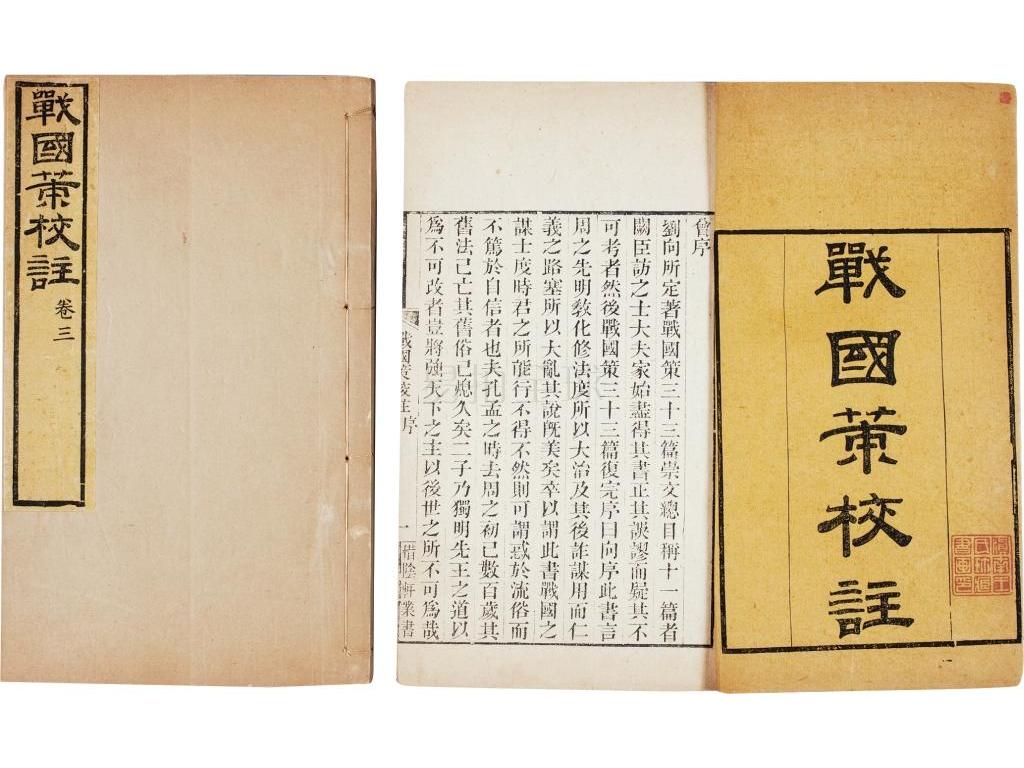 戰國策校註
卷三
戰國策校註
曾序
劉向所定著戰國策三十三篇崇文總目稱十一篇者
闕臣訪之士大夫家始盡得其書正其誤謬而疑其不
可考者然後戰國策三十三篇復完序曰向序此書言
周之先明敎化修法度所以大治及其後詐謀用而仁
義之路塞所以大亂其說旣美矣卒以謂此書戰國之
謀士度時君之所能行不得不然則可謂惑於流俗而
不篤於自信者也夫孔孟之時去周之初已數百歲其
舊法已亡其舊俗已熄久矣二子乃獨明先王之道以
爲不可改者豈將強天下之主以後世之所不可爲哉
戰國策校注序
一
惜陰軒叢書